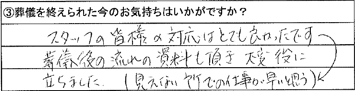 ③葬儀を終えられた今のお気持ちはいかがですか？
スタッフの皆様の対応はとても良かったです
葬儀後の流れの資料も頂き大変役に
立ちました。（見えない所での仕事が早いと思う）